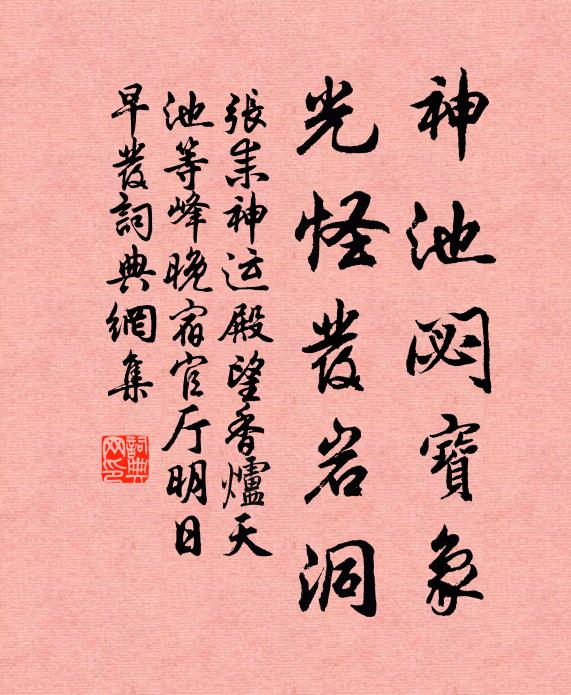 神池閟寶象
光怪發岩洞
張耒神运殿望香爐天
池等峰晚宿官厅明日
早發詞典網集
詞典
网印